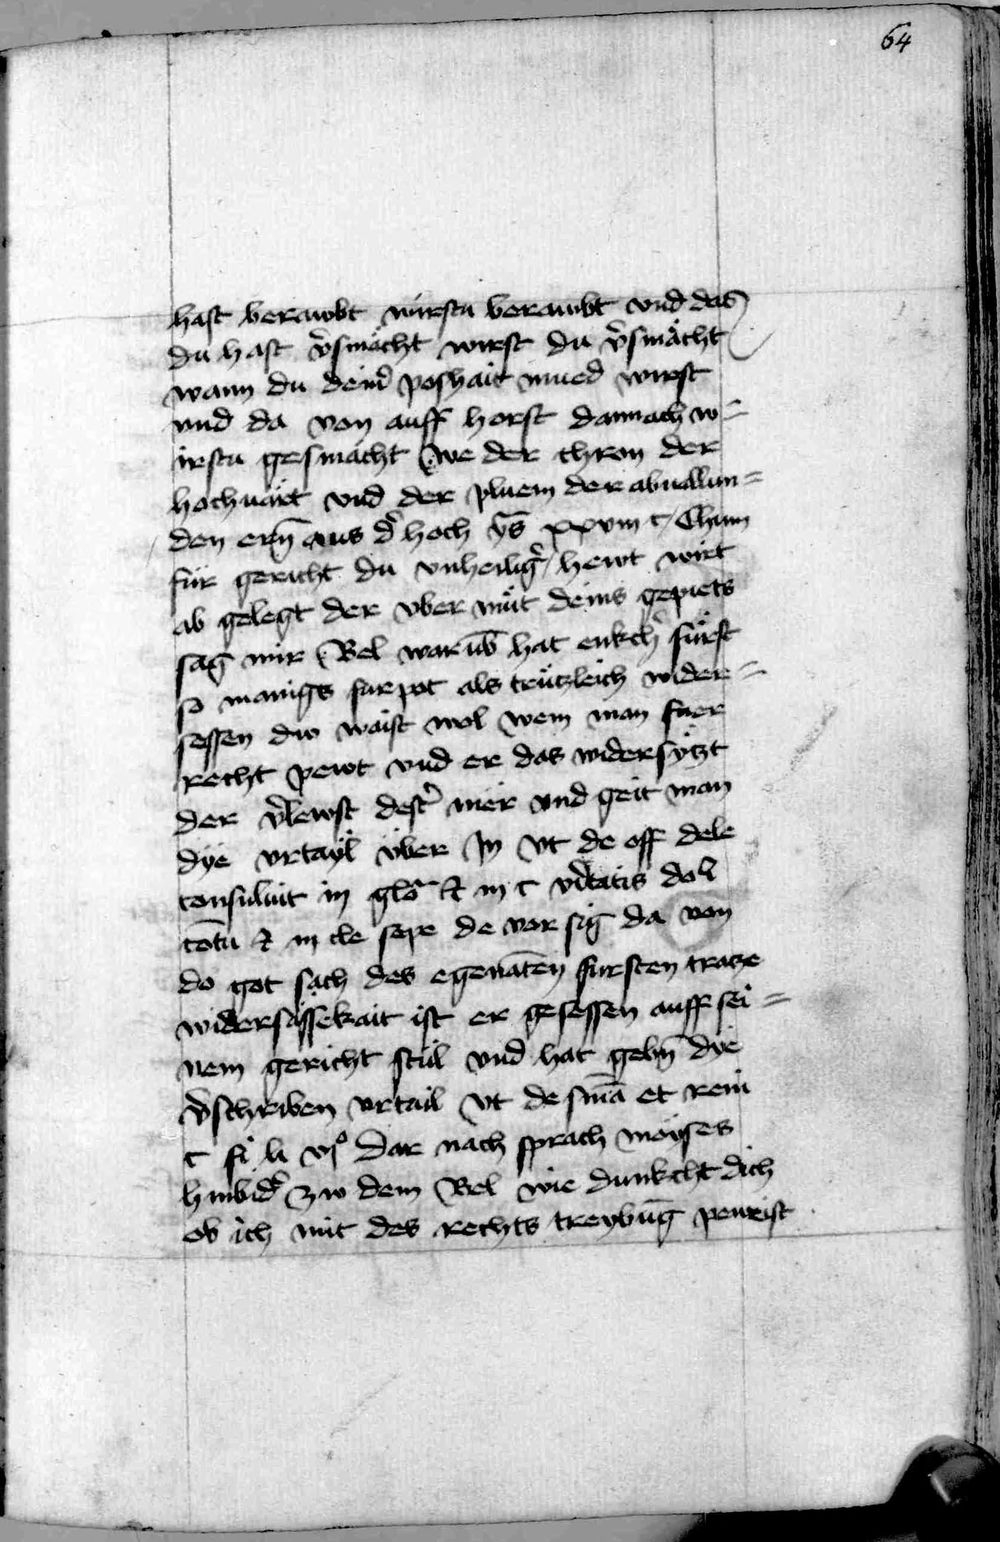 64
hast beraubt wirstu beraubt vnd das
du hast v̾smächt wirst du v̾smächt
wann du deind̾ poshait mued wirst
vnd da von auff horst darnach w=
irstu gesmächt we der thron der
hochuart vnd der pluem der abuallun=
den ern̄ aus d̾ hoch ys̄ xxviii c Chum
für gericht du vnheilig̾ hewt wirt
ab gelegt der vber müt deins gepiets
sag mir Bel warūb hat enkch̾ fürst
so manigs furpot als trützleich wider=
sessen dw waist wol wem man fuer
recht pewt vnd er das widersytzt
der v̾lewst dest̾ mer vnd geit man
dye vrtayl über In vt de off dele
consuluit in glō et in c v̾itatis dol
cōtu et in cle sepe de vor sig da von
do got sach des egenāten fursten tratze
widersässekait ist er gesessen auff sei=
nem gericht stul vnd hat gebn̄ dye
v̾schriben vrtail vt de sniā et rei iu
c fi li vjº dar nach sprach moyses
hinbid̾ zw dem Bel wie dunkcht dich
ob ich mit des rechts treybūg peweist